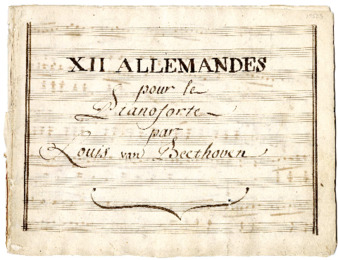 XII ALLEMANDES
pour le
Pianoforte
par
Louis van Beethoven